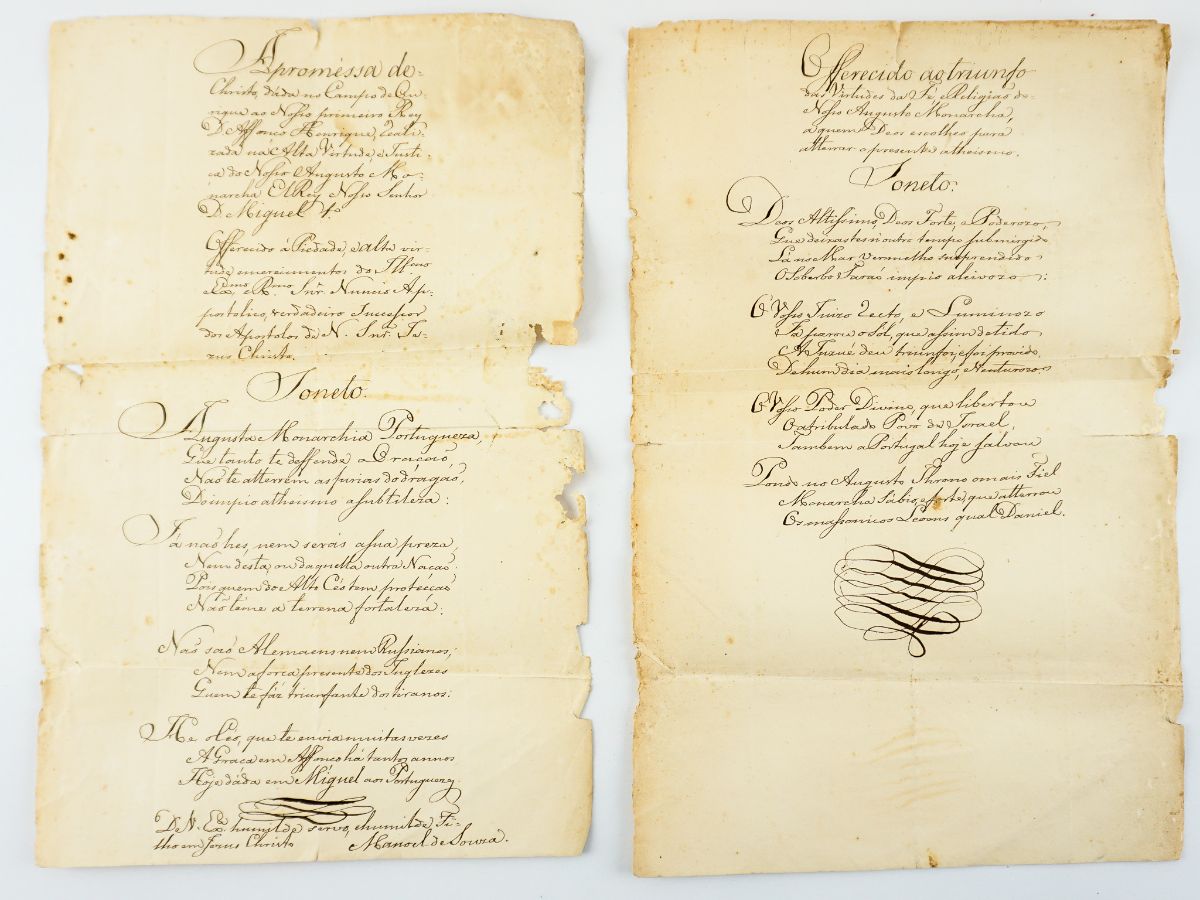 A promessa de
Christo, dada no Campo de Ou-
rique ao Nosso primeiro Rey
D. Affonco Henrique, reali-
zada na Alta Virtude, e Justi-
ca do Nosso Augusto Mo-
narcha ElRey Nosso Senhor
D. Miguel 1º
Offerecido á Piedade, e alta vir-
tude emerecimentos do Illmo
e Exmo e Rmo Snr. Nuncio Ap-
postolico, verdadeiro Sucessor
dos Apostolos de N. Snr. Je-
zus Christo.
Soneto.
Augusta Monarchia Portugueza,
Que tanto te deffende a Oraçaõ,
Naõ te atterrem as furias do dragaõ,
Do impio atheismo a subtileza:
Já naõ hes, nem serás a sua preza,
Nem désta, ou daquella outra Naçaõ
Pois quem do Alto Céo tem protécçaõ
Naõ téme a terrena fortaleza.
Naõ saõ Alemaens nem Russianos,
Nem a forca presente dos Inglezes
Quem te fáz triunfante dos tiranos:
He o Céo, que te envia muitas vezes
A Graca em Affonco há tantos annos
Hoje dáda em Miguel aos Portuguezes.
D. V. Ex. humilde servo, ehumilde Fi-
lho em Jezus Christo Manoel de Souza.
Offerecido ao triunfo
das Virtudes da Fé, e Religiaõ do
Nosso Augusto Monarcha,
a quem Deos escolheo para
atterrar o presente atheismo.
Soneto.
Deos Altissimo, Deos Forte, e Poderozo,
Que deixastes n'outro tempo submergido
Lá no Mar vermelho surprendido
O Soberbo Faraó impio aleivozo:
O Vosso Juizo recto, e Luminozo
Fá parou o Sól, que assim detido
A Juzué deu triunfo, e foi provido
De hum dia mais longo, e Venturozo.
O Vosso Poder Divino, que libertou
O atribulado Povo de Israel,
Tambem a Portugal hoje salvou
Pondo no Augusto Throno o mais Fiel
Monarcha Sábio, e forte, que atterrou
Os massonicos Leoens qual Daniel.